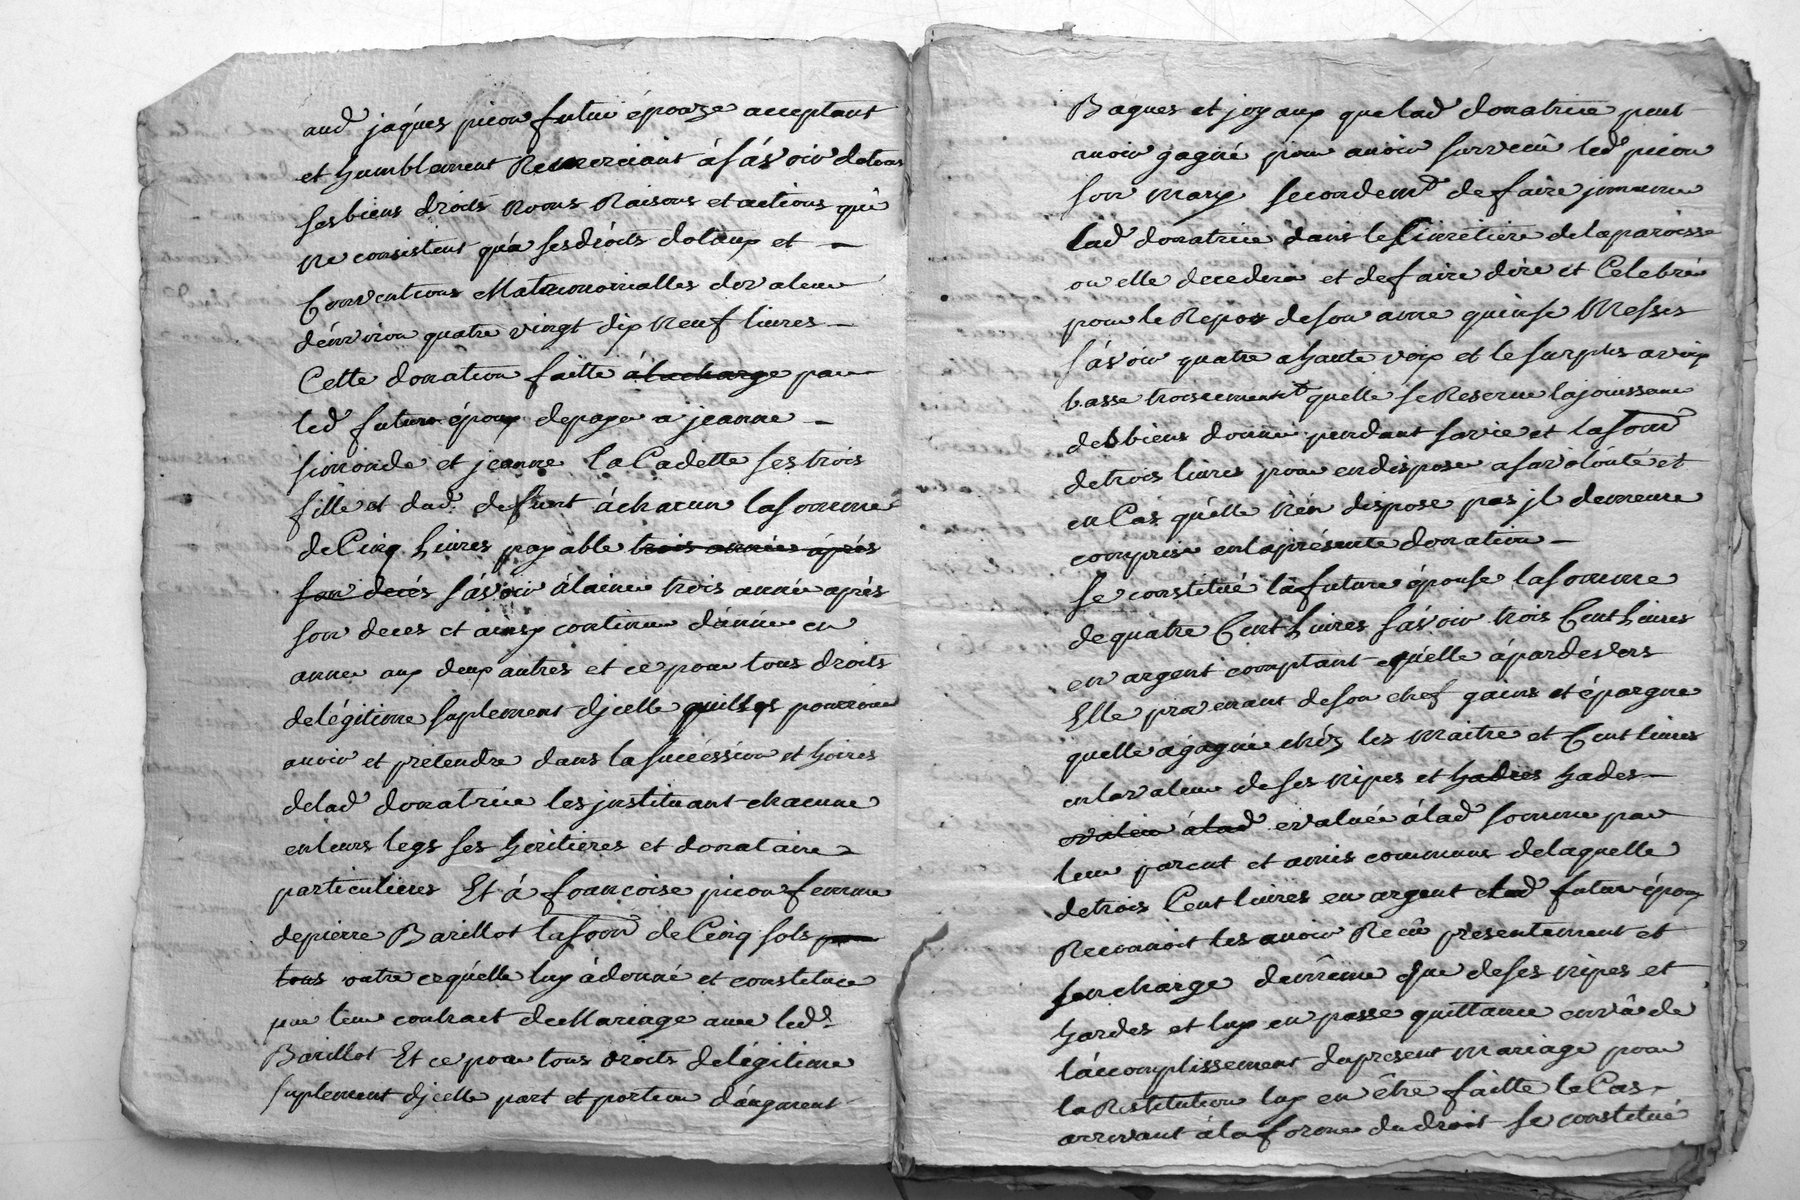 aud jaques picon futur épouze acceptant
et humblement Remerciant á sávoir de tous
ses biens droits noms Raisons et actions qui
ne consistent quá ses droits dotaux et –
Conventions Matrimonialles de valeur
dénviron quatre vingt dix neuf livres –
Cette donation faitte á la charge par
led futur époux de payer a jeanne –
simonde et jeanne la Cadette ses trois
fille et dud. defunt á chacun la somme
de Cinq Livres payable trois années áprés
son decés sávoir á lainee trois année aprés
son deces et ainsy continuer dánnée en
année aux deux autres et ce pour tous droits
de légitime suplement djcelle quilles pourroient
avoir et prétendre dans la succéssion et hoires
de lad donatrice les jnstituant chacune
en leurs legs ses héritieres et donataire
particulieres Et á francoise picon femme
de pierre Barillot la som de Cinq sols
tous outre ce quélle luy á donné et constitué
par leur contract de Mariage avec led.
Barillot Et ce pour tous droits de légitime
suplement djcelle part et portion d'augment
Bagues et joyaux que lad donatrice peut
avoir gagné pour avoir survecû led picon
son mary secondemt de faire jnhumer
lad donatrice dans le Simetiere de la paroisse
ou elle decedera et de faire dire et Celebrér
pour le Repos de son ame quinse Messes
sávoir quatre a haute voix et le surplus a voix
basse troisiement quelle se Reserve la jouissance
des biens donné pendant sa vie et la som
de trois livres pour en disposer a sa volonté et
en Cas quélle nén dispose pas jl demeure
compris en la présente donation –
se constitué la future épouse la somme
de quatre Cent Livres sávoir trois Cent Livres
en argent comptant quélle á pardevers
Elle provenant de son chef gains et épargne
quelle á gagnée chéz les maitre et Cent livres
en la valeur de ses nipes et hadres hades –
evaluée á lad somme par
leur parent et amis communs de laquelle
de trois Cent livres en argent led futur époux
Reconnoit les avoir Recû présentement et
sen charge de même que de ses nipes et
hardes et luy en passe quittance en vûe de
láccomplissement du present mariage pour
la Restitution luy en être faitte le Cas
arrivant á la forme du droit se constitué